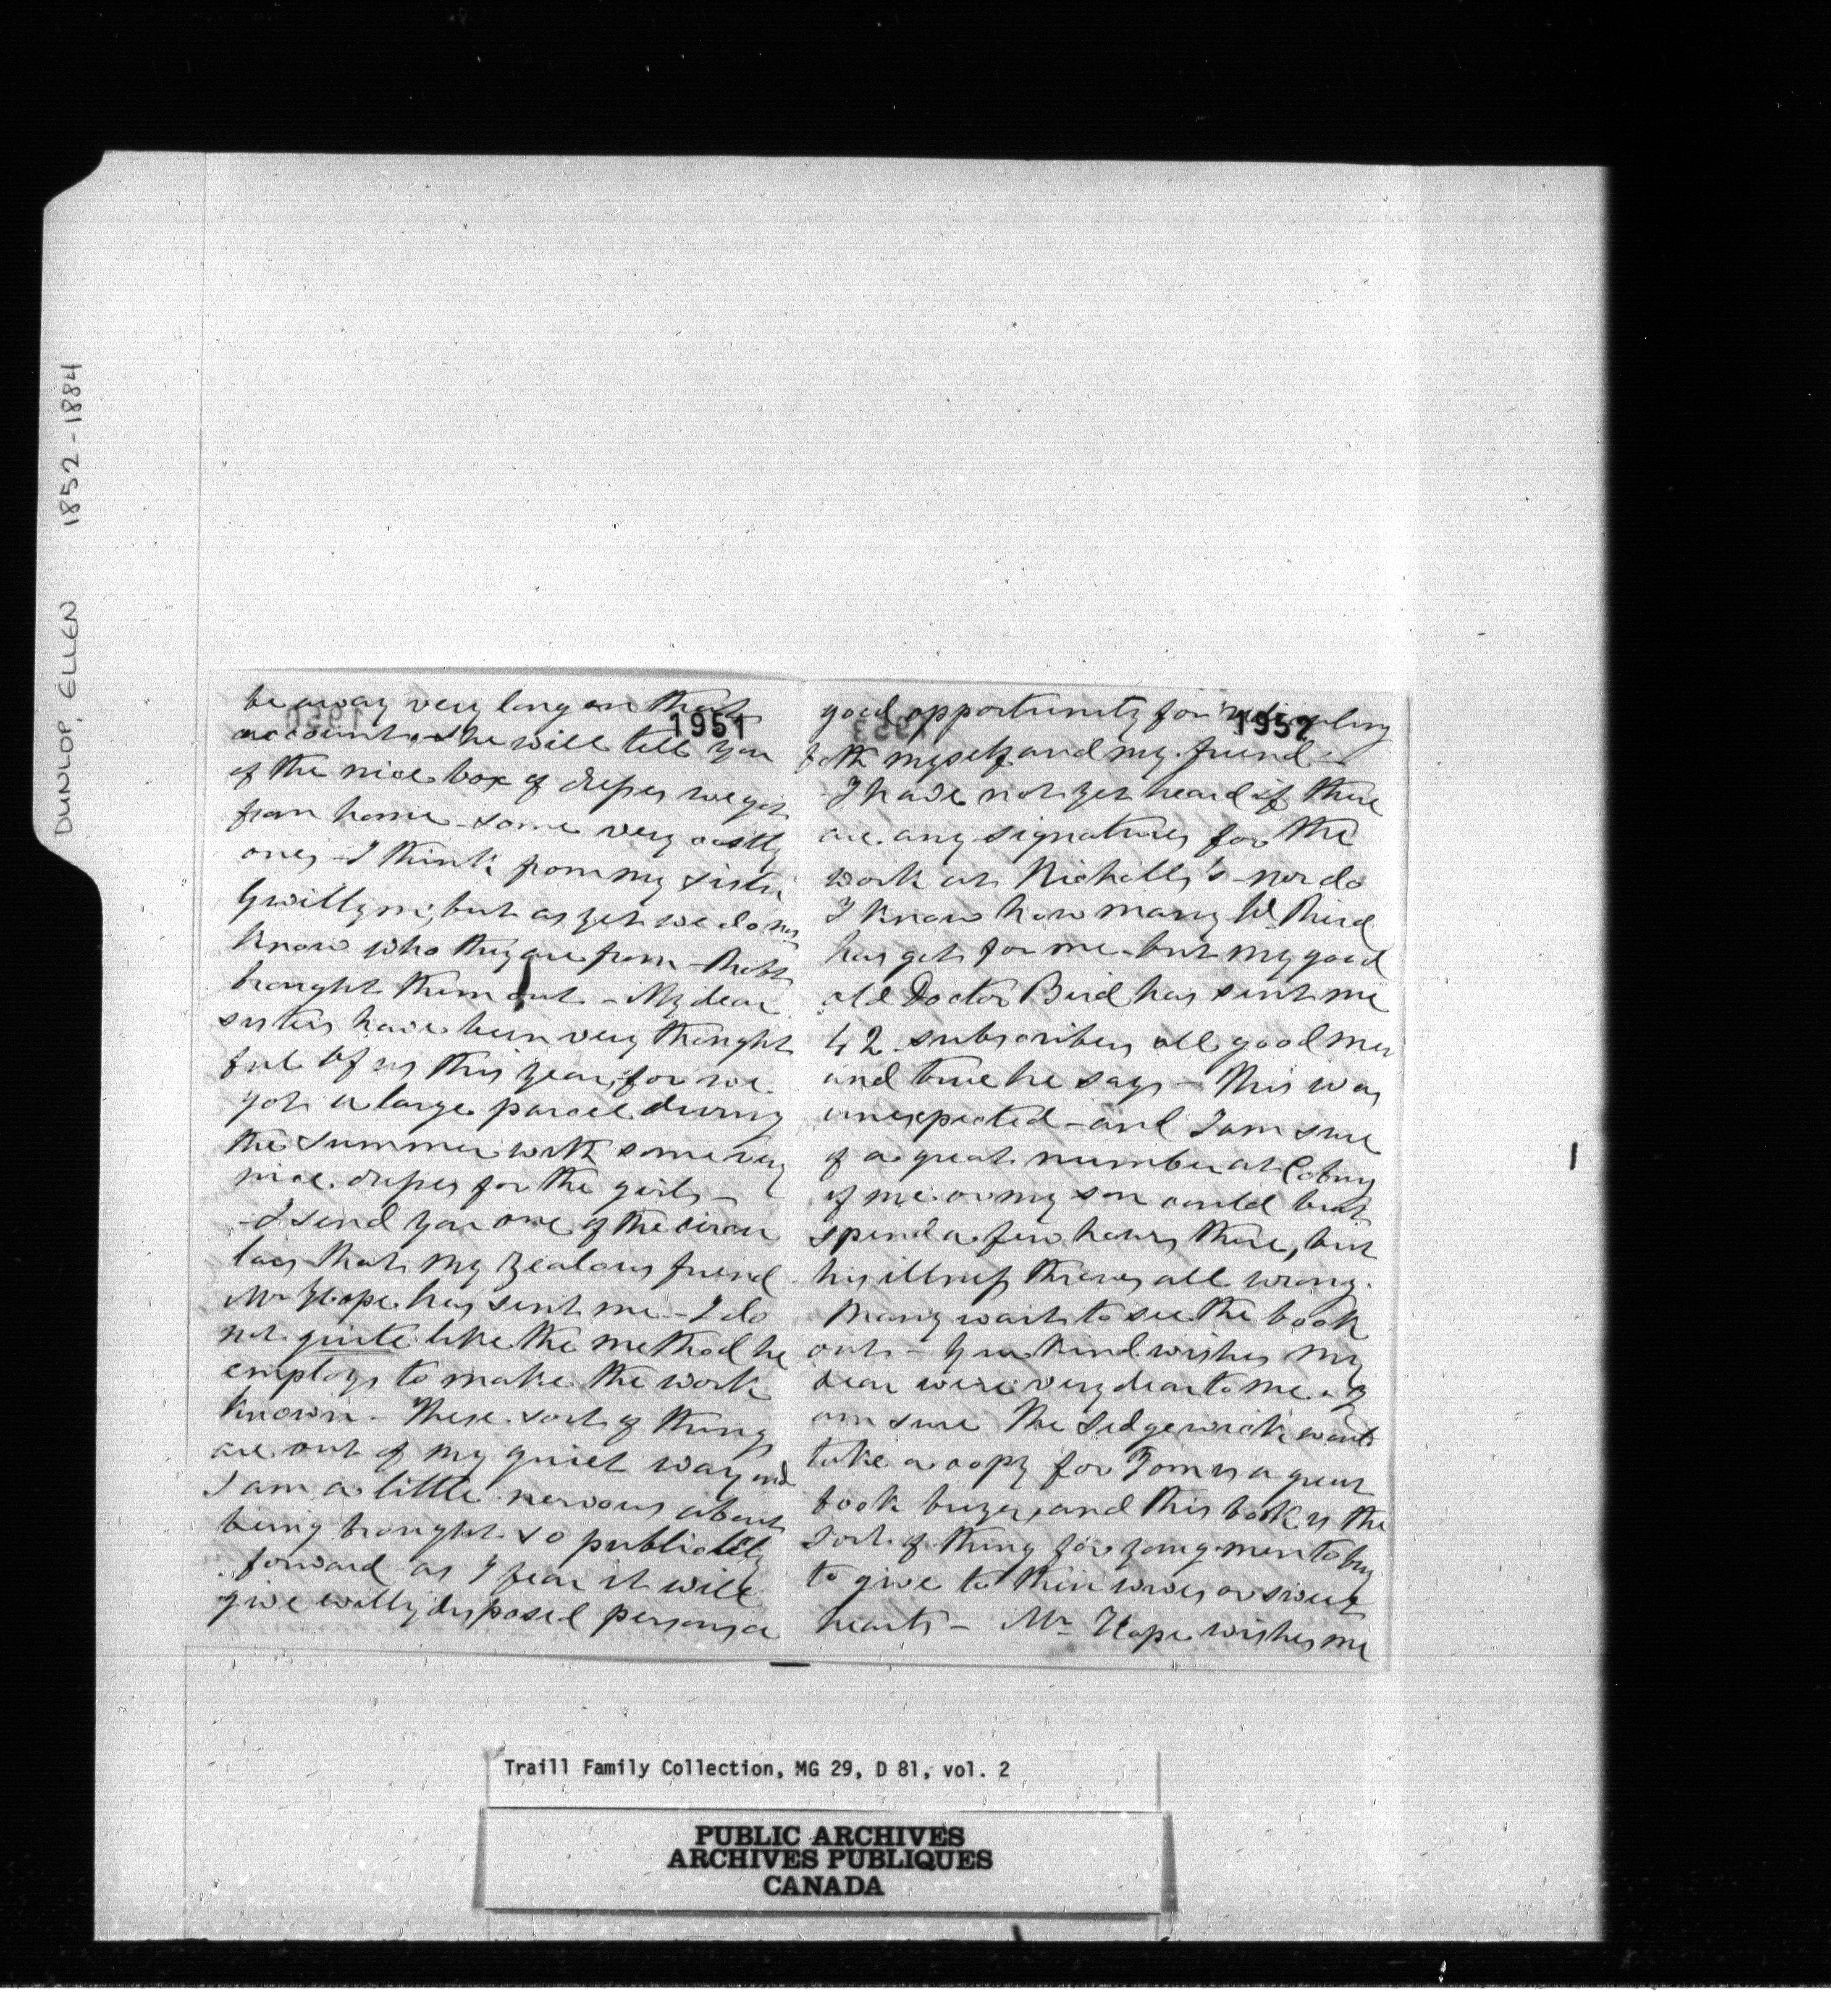 DUNLOP, ELLEN 1852-1884
1951
be away very long on that
account, she will tell you
of the nice box of dresses we got
from home - some very costly
ones - I think from my sister
Gwillym; but as yet we do not
know who they are from -
brought them out - My dear
sisters have been very thought
ful of us this year, for we
got a large parcel during
the summer with some very
nice dresses for the girls -
- I send you one of the circu
lars that my zealous friend
Mr Hope has sent me - I do
not quite like the method he
employs to make the work
known - These sort of things
are out of my quiet way and
I am a little nervous about
being brought so publickly
forward as I fear it will
give evilly disposed persons a
1952
good opportunity for ridiculing
both myself and my friend -
I have not yet heard if there
are any signatures for the
work at Nicholls's - nor do
I know how many W.
has got for me - but my good
old Doctor Bird has sent me
42 subscribers all good men
and true he says - This was
unexpected - and I am sure
of a great number at Cobourg
if me or my son could but
spend a few hours there, but
his illness throws all wrong.
Many wait to see the book
out - Your kind wishes my
dear were very dear to me. I
am sure The Sedgewick would
take a copy for Tom is a great
book buyer, and this book is the
sort of thing for young men to buy
to give to their wives or sweet
hearts - Mr Hope wishes me
Traill Family Collection, MG 29, D 81, vol. 2
PUBLIC ARCHIVES
ARCHIVES PUBLIQUES
CANADA